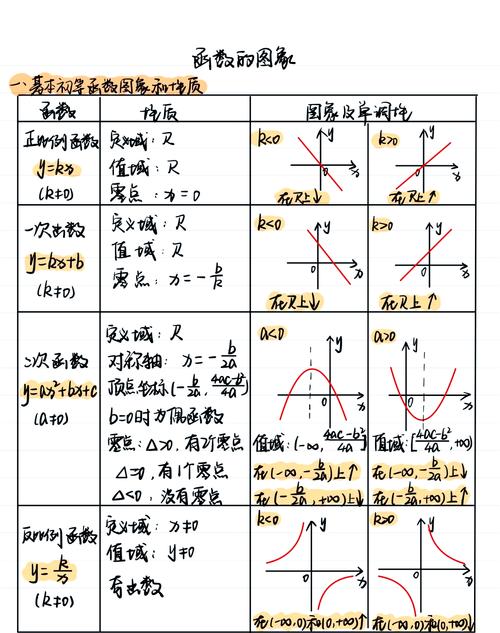 函数的图象
一、基本初等函数图象和性质
函数 性质 图象及单调性
正比例函数
y=kx
(k≠0)
定义域：R
值域：R
零点：x=0
k<0
y
0
x
在R上↓
k>0
y
0
x
在R上↑
一次函数
y=kx+b
(k≠0)
定义域：R
值域：R
零点：x=-b/k
k<0
y
0
x
在R上↓
k>0
y
0
x
在R上↑
二次函数
y=ax²+bx+c
(a≠0)
定义域：R
对称轴：x=-b/2a
顶点坐标(-b/2a, 4ac-b²/4a)
b=0时为偶函数
零点：△>0，有2个零点
△=0，有1个零点
△<0，没有零点
a<0
y
0
x
值域：(-∞, 4ac-b²/4a]
在(-∞,-b/2a)上↑
在(-b/2a,+∞)上↓
a>0
y
0
x
值域：[4ac-b²/4a,+∞)
在(-∞,-b/2a)上↓
在(-b/2a,+∞)上↑
反比例函数
y=k/x
(k≠0)
定义域：x≠0
值域：y≠0
奇函数
k<0
y
0
x
在(-∞,0)和(0,+∞)↑
k>0
y
0
x
在(-∞,0)和(0,+∞)↓